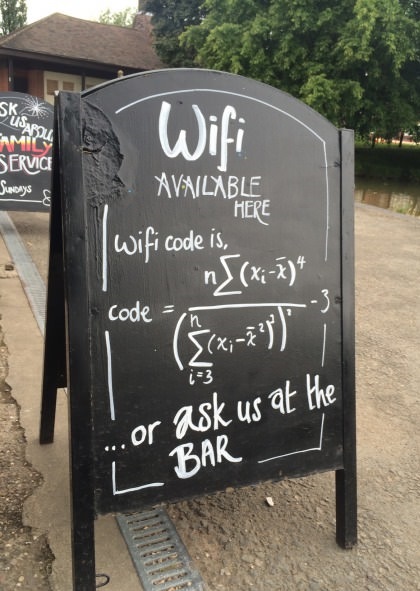 SK
US ABOU
FAMILY
SERVICE
SUNDAYS
Wifi
AVAILABLE
HERE
Wifi code is,
n∑(xᵢ-x̄)⁴
code = ――― -3
(∑(xᵢ-x̄²)²)²
n
i=3
...or ask us at the
BAR